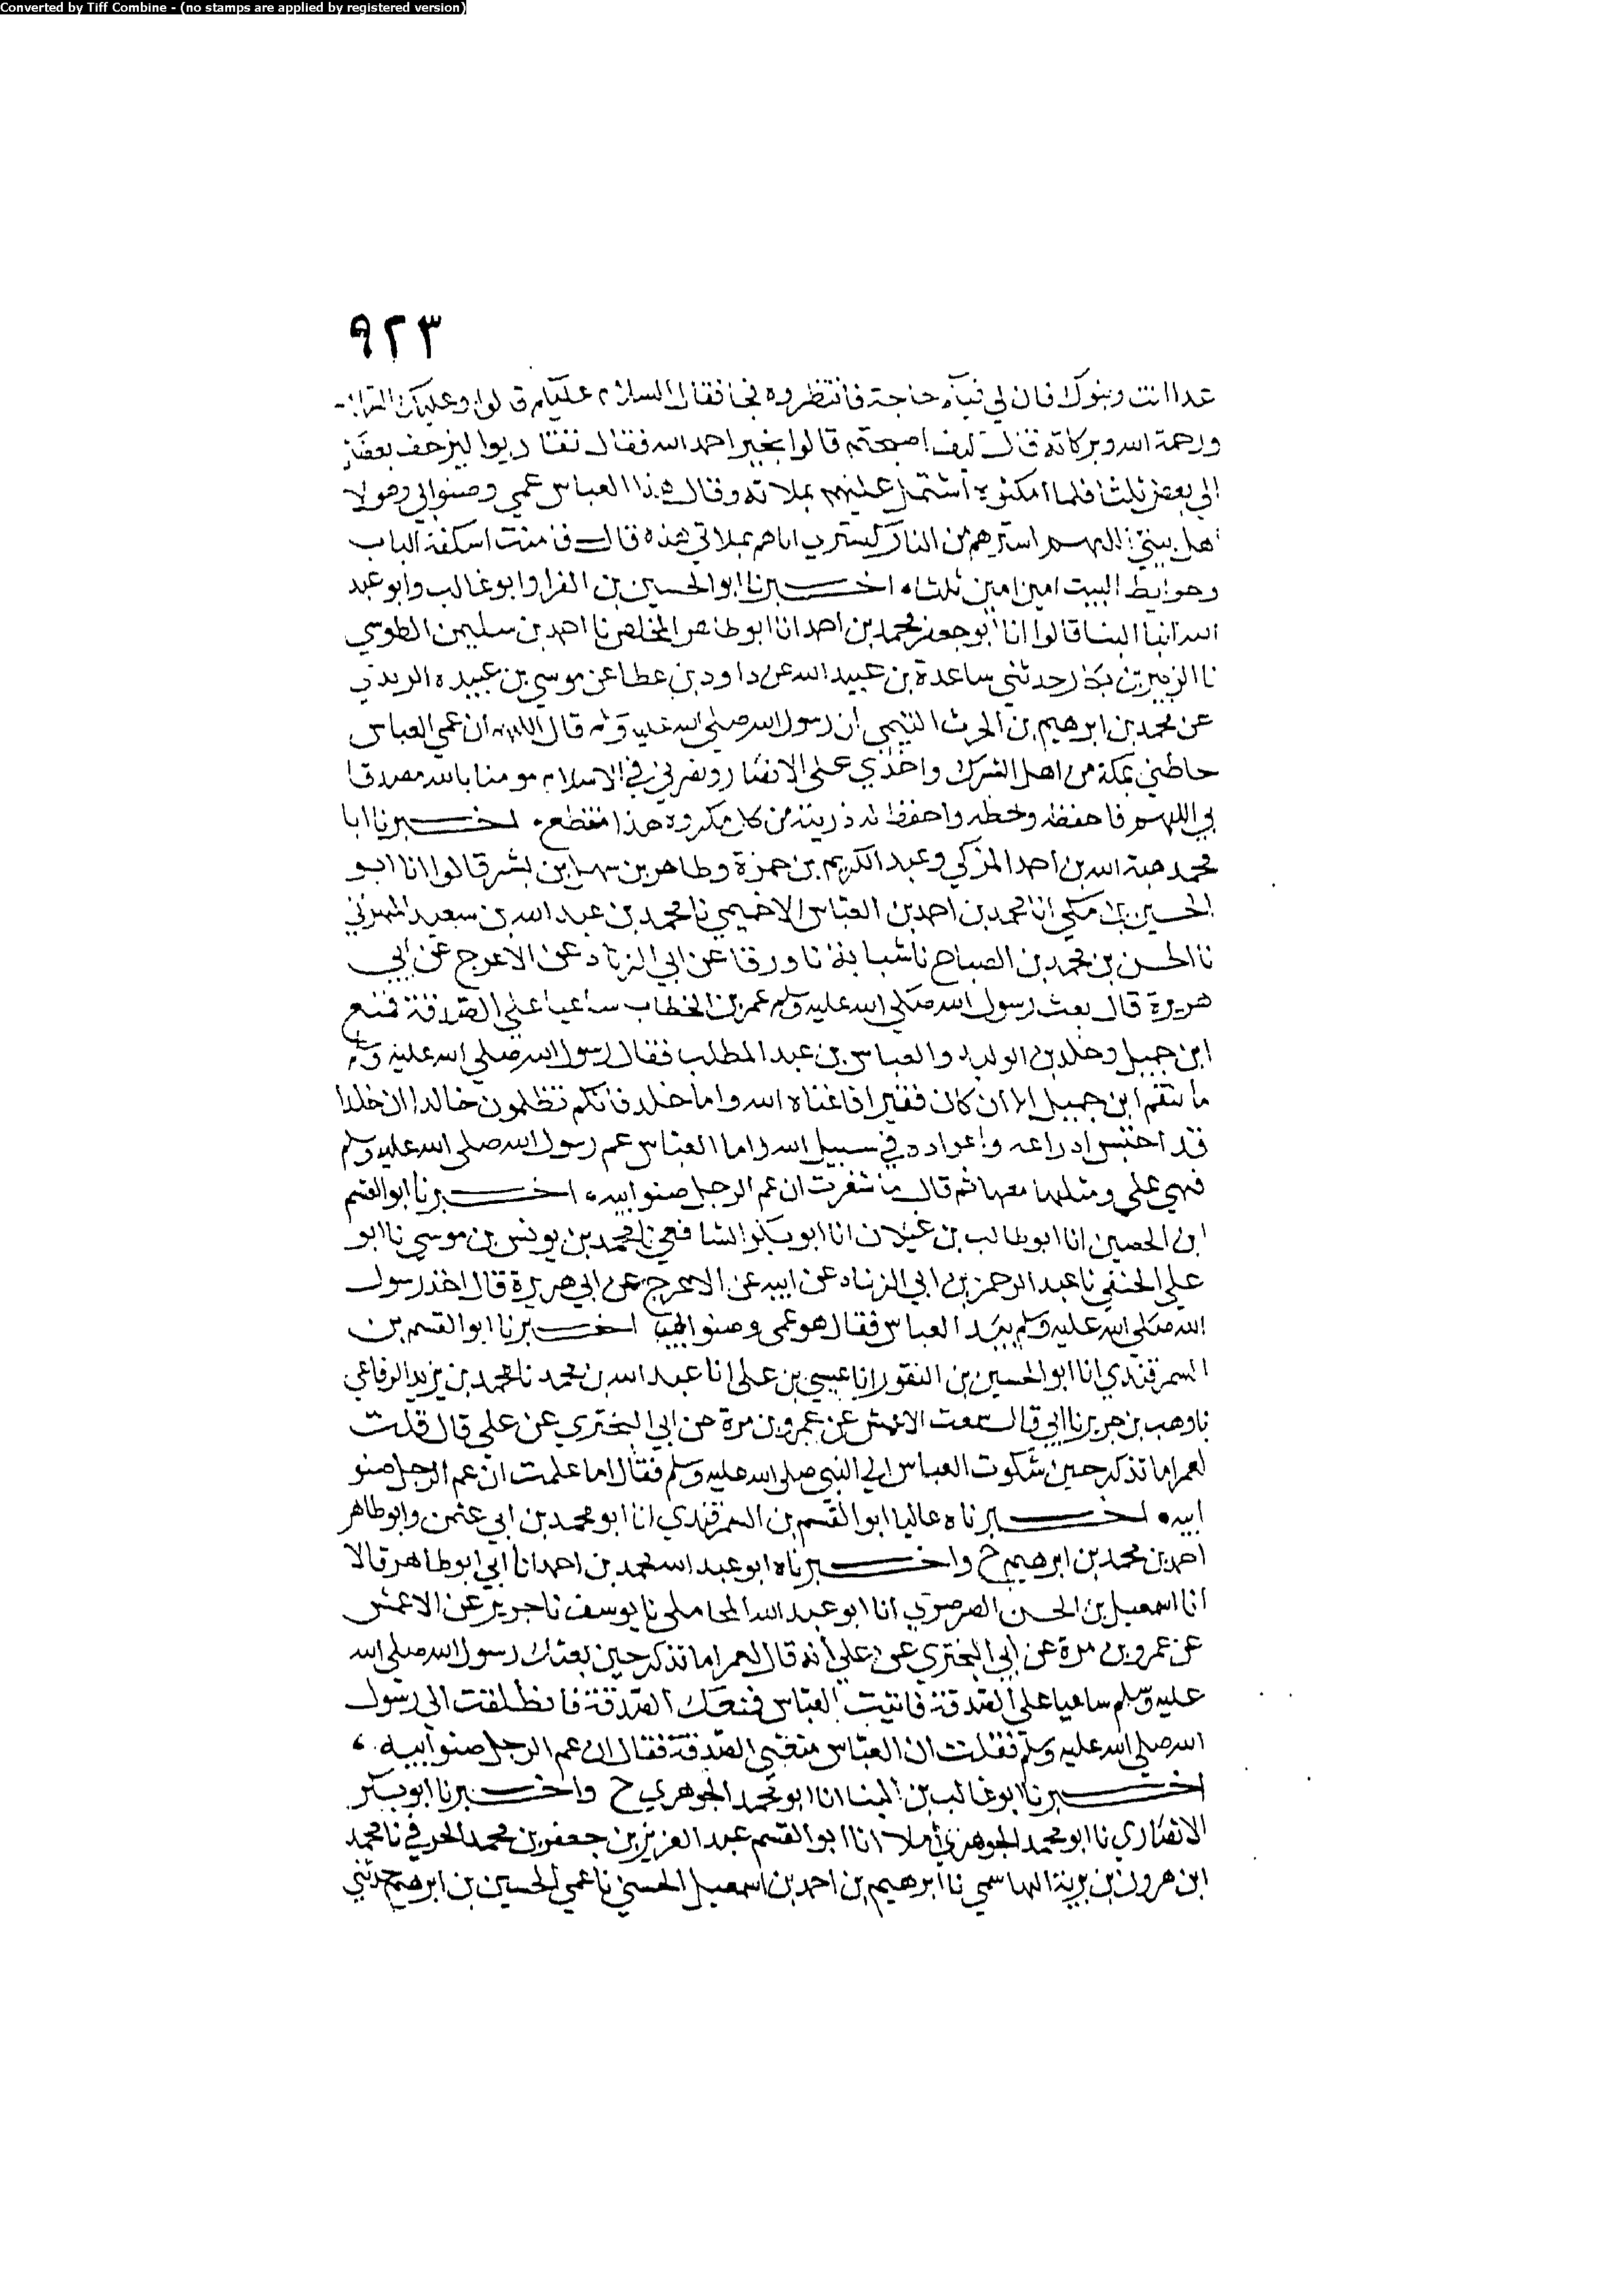 Converted by Tiff Combine - (no stamps are applied by registered version)
٩٢٣
غدا انت وبنوك فان لي فيكم حاجة فانتظروه فجا فقال السلام عليكم قالوا وعليك السلام
ورحمة الله وبركاته قال كيف اصبحتم قالوا بخير احمد الله فقال تقاربوا ليزحف بعضكم
الى بعض ثلثا فلما امكنوه اشتمل عليهم بملاته وقال هذا العباس عمي وصنو ابي وهولا
اهل بيتي اللهم استرهم من النار كستري اياهم بملاتي هذه قال فامنت اسكفة الباب
وحوايط البيت امين امين ثلثا اخبرنا ابو الحسين بن الفرا وابو غالب وابو عبد
الله ابنا البنا قالوا انا ابو جعفر محمد بن احمد انا ابو طاهر المخلص نا احمد بن سليمن الطوسي
نا الزبير بن بكار حدثني ساعدة بن عبيد الله عن داود بن عطا عن موسى بن عبيده الربذي
عن محمد بن ابرهيم بن الحرث التيمي ان رسول الله صلى الله عليه وسلم قال اللهم ان عمي العباس
حاطني بمكة من اهل الشرك واخذ لي على الانصار ونصرني في الاسلام مومنا بالله مصدقا
بي اللهم فاحفظه وحطه واحفظ له ذريته من كل مكروه هذا منقطع اخبرنا ابا
محمد هبة الله بن احمد المزكي وعبد الكريم بن حمزة وطاهر بن سهل بن بشر قالوا انا ابو
الحسين بن مكي انا محمد بن احمد بن العباس الاخميمي نا محمد بن عبد الله بن سعيد المهراني
نا الحسن بن محمد بن الصباح نا شبابة نا ورقا عن ابي الزناد عن الاعرج عن ابي
هريرة قال بعث رسول الله صلى الله عليه وسلم عمر بن الخطاب ساعيا على الصدقة فمنع
ابن جميل وخلد بن الوليد والعباس بن عبد المطلب فقال رسول الله صلى الله عليه وسلم
ما ينقم ابن جميل الا ان كان فقيرا فاغناه الله واما خلد فانكم تظلمون خالدا ان خلدا
قد احتبس ادراعه واعواده في سبيل الله واما العباس عم رسول الله صلى الله عليه وسلم
فهي علي ومثلها معها ثم قال ما شعرت ان عم الرجل صنو ابيه اخبرنا ابو القسم
ابن الحصين انا ابو طالب بن غيلان انا ابو بكر الشافعي نا محمد بن يونس بن موسى نا ابو
علي الحنفي نا عبد الرحمن بن ابي الزناد عن ابيه عن الاعرج عن ابي هريرة قال اخذ رسول
الله صلى الله عليه وسلم بيد العباس فقال هو عمي وصنو ابي اخبرنا ابو القسم بن
السمرقندي انا ابو الحسين بن النقور انا عيسى بن علي انا عبد الله بن محمد نا محمد بن يزيد الرفاعي
نا وهب بن جرير نا ابي قال سمعت الاعمش عن عمرو بن مرة عن ابي البختري عن علي قال قلت
لعمر اما تذكر حين شكوت العباس الي النبي صلى الله عليه وسلم فقال اما علمت ان عم الرجل صنو
ابيه اخبرناه عاليا ابو القسم بن السمرقندي انا ابو محمد بن ابي عثمن وابو طاهر
احمد بن محمد بن ابرهيم ح واخبرناه ابو عبد الله محمد بن احمد انا ابي ابو طاهر قالا
انا اسمعيل بن الحسن الصرصري انا ابو عبد الله المحاملي نا يوسف نا جرير عن الاعمش
عن عمرو بن مرة عن ابي البختري عن علي انه قال لعمر اما تذكر حين بعثك رسول الله صلى الله
عليه وسلم ساعيا على الصدقة فاتيت العباس فمنعك الصدقة فانطلقت الى رسول
الله صلى الله عليه وسلم فقلت ان العباس منعني الصدقة فقال ان عم الرجل صنو ابيه
اخبرنا ابو غالب بن البنا انا ابو محمد الجوهري ح واخبرنا ابو بكر
الانصاري نا ابو محمد الجوهري املا انا ابو القسم عبد العزيز بن جعفر بن محمد الحرفي نا محمد
ابن هرون بن برية الهاشمي نا ابرهيم بن احمد بن اسمعيل الحسني نا عمي الحسين بن ابرهيم حدثني